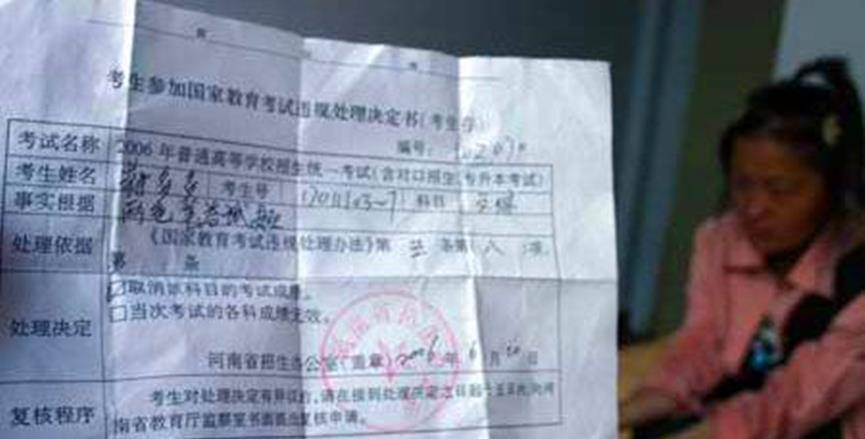 考生参加国家教育考试违规处理决定书(考生
编号:
考试名称 2006 年普通高等学校招生统一考试(含对口招生、专升本考试)
考生姓名 考生号 科目
事实根据
处理依据 《国家教育考试违规处理办法》第 条第 八 项、
第 条
处理决定 ☑取消该科目的考试成绩。
□当次考试的各科成绩无效。
河南省招生办公室(盖章) 2006 年 6 月 日
复核程序 考生对处理决定有异议的,请在接到处理决定之日起十五日内,向河
南省教育厅监察室书面提出复核申请。